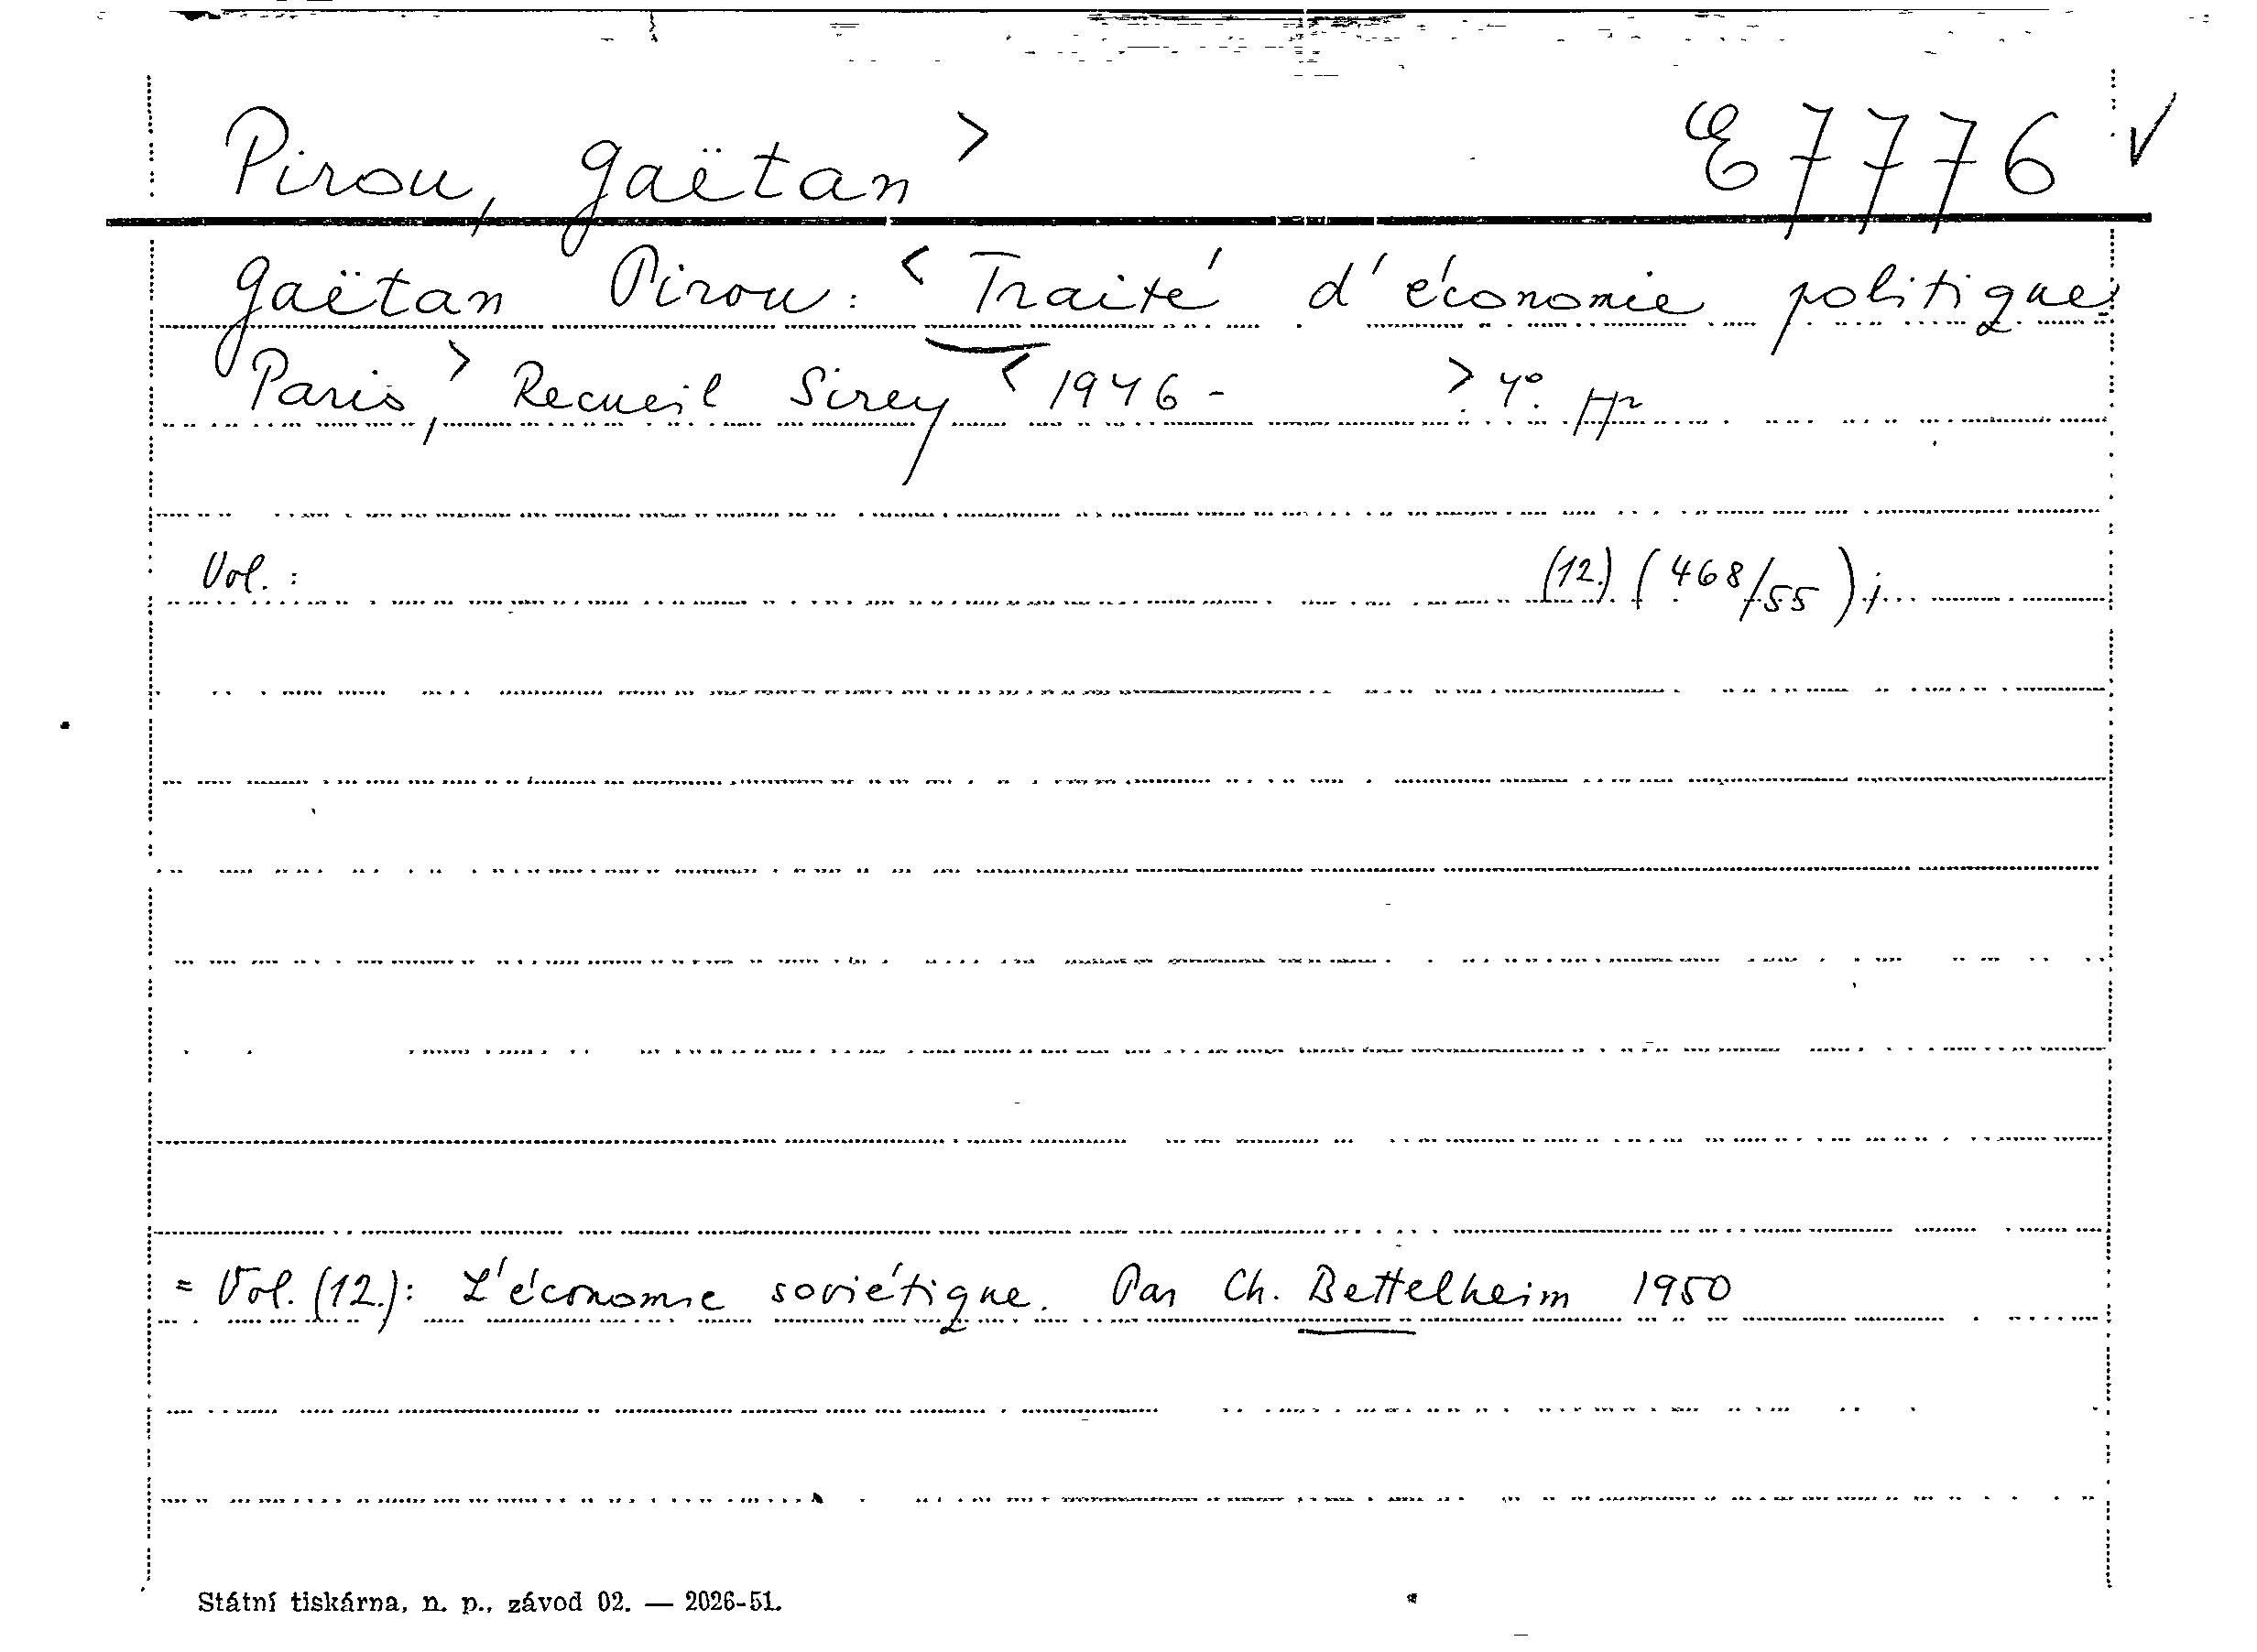 Pirou, Gaëtan > E 7776 √
Gaëtan Pirou: < Traité d'économie politique.
Paris, > Recueil Sirey < 1946 - > 4°.
Vol.: (12.) (468/55);
= Vol. (12.): L'économie soviétique. Par Ch. Bettelheim 1950
Státní tiskárna, n. p., závod 02. — 2026-51.